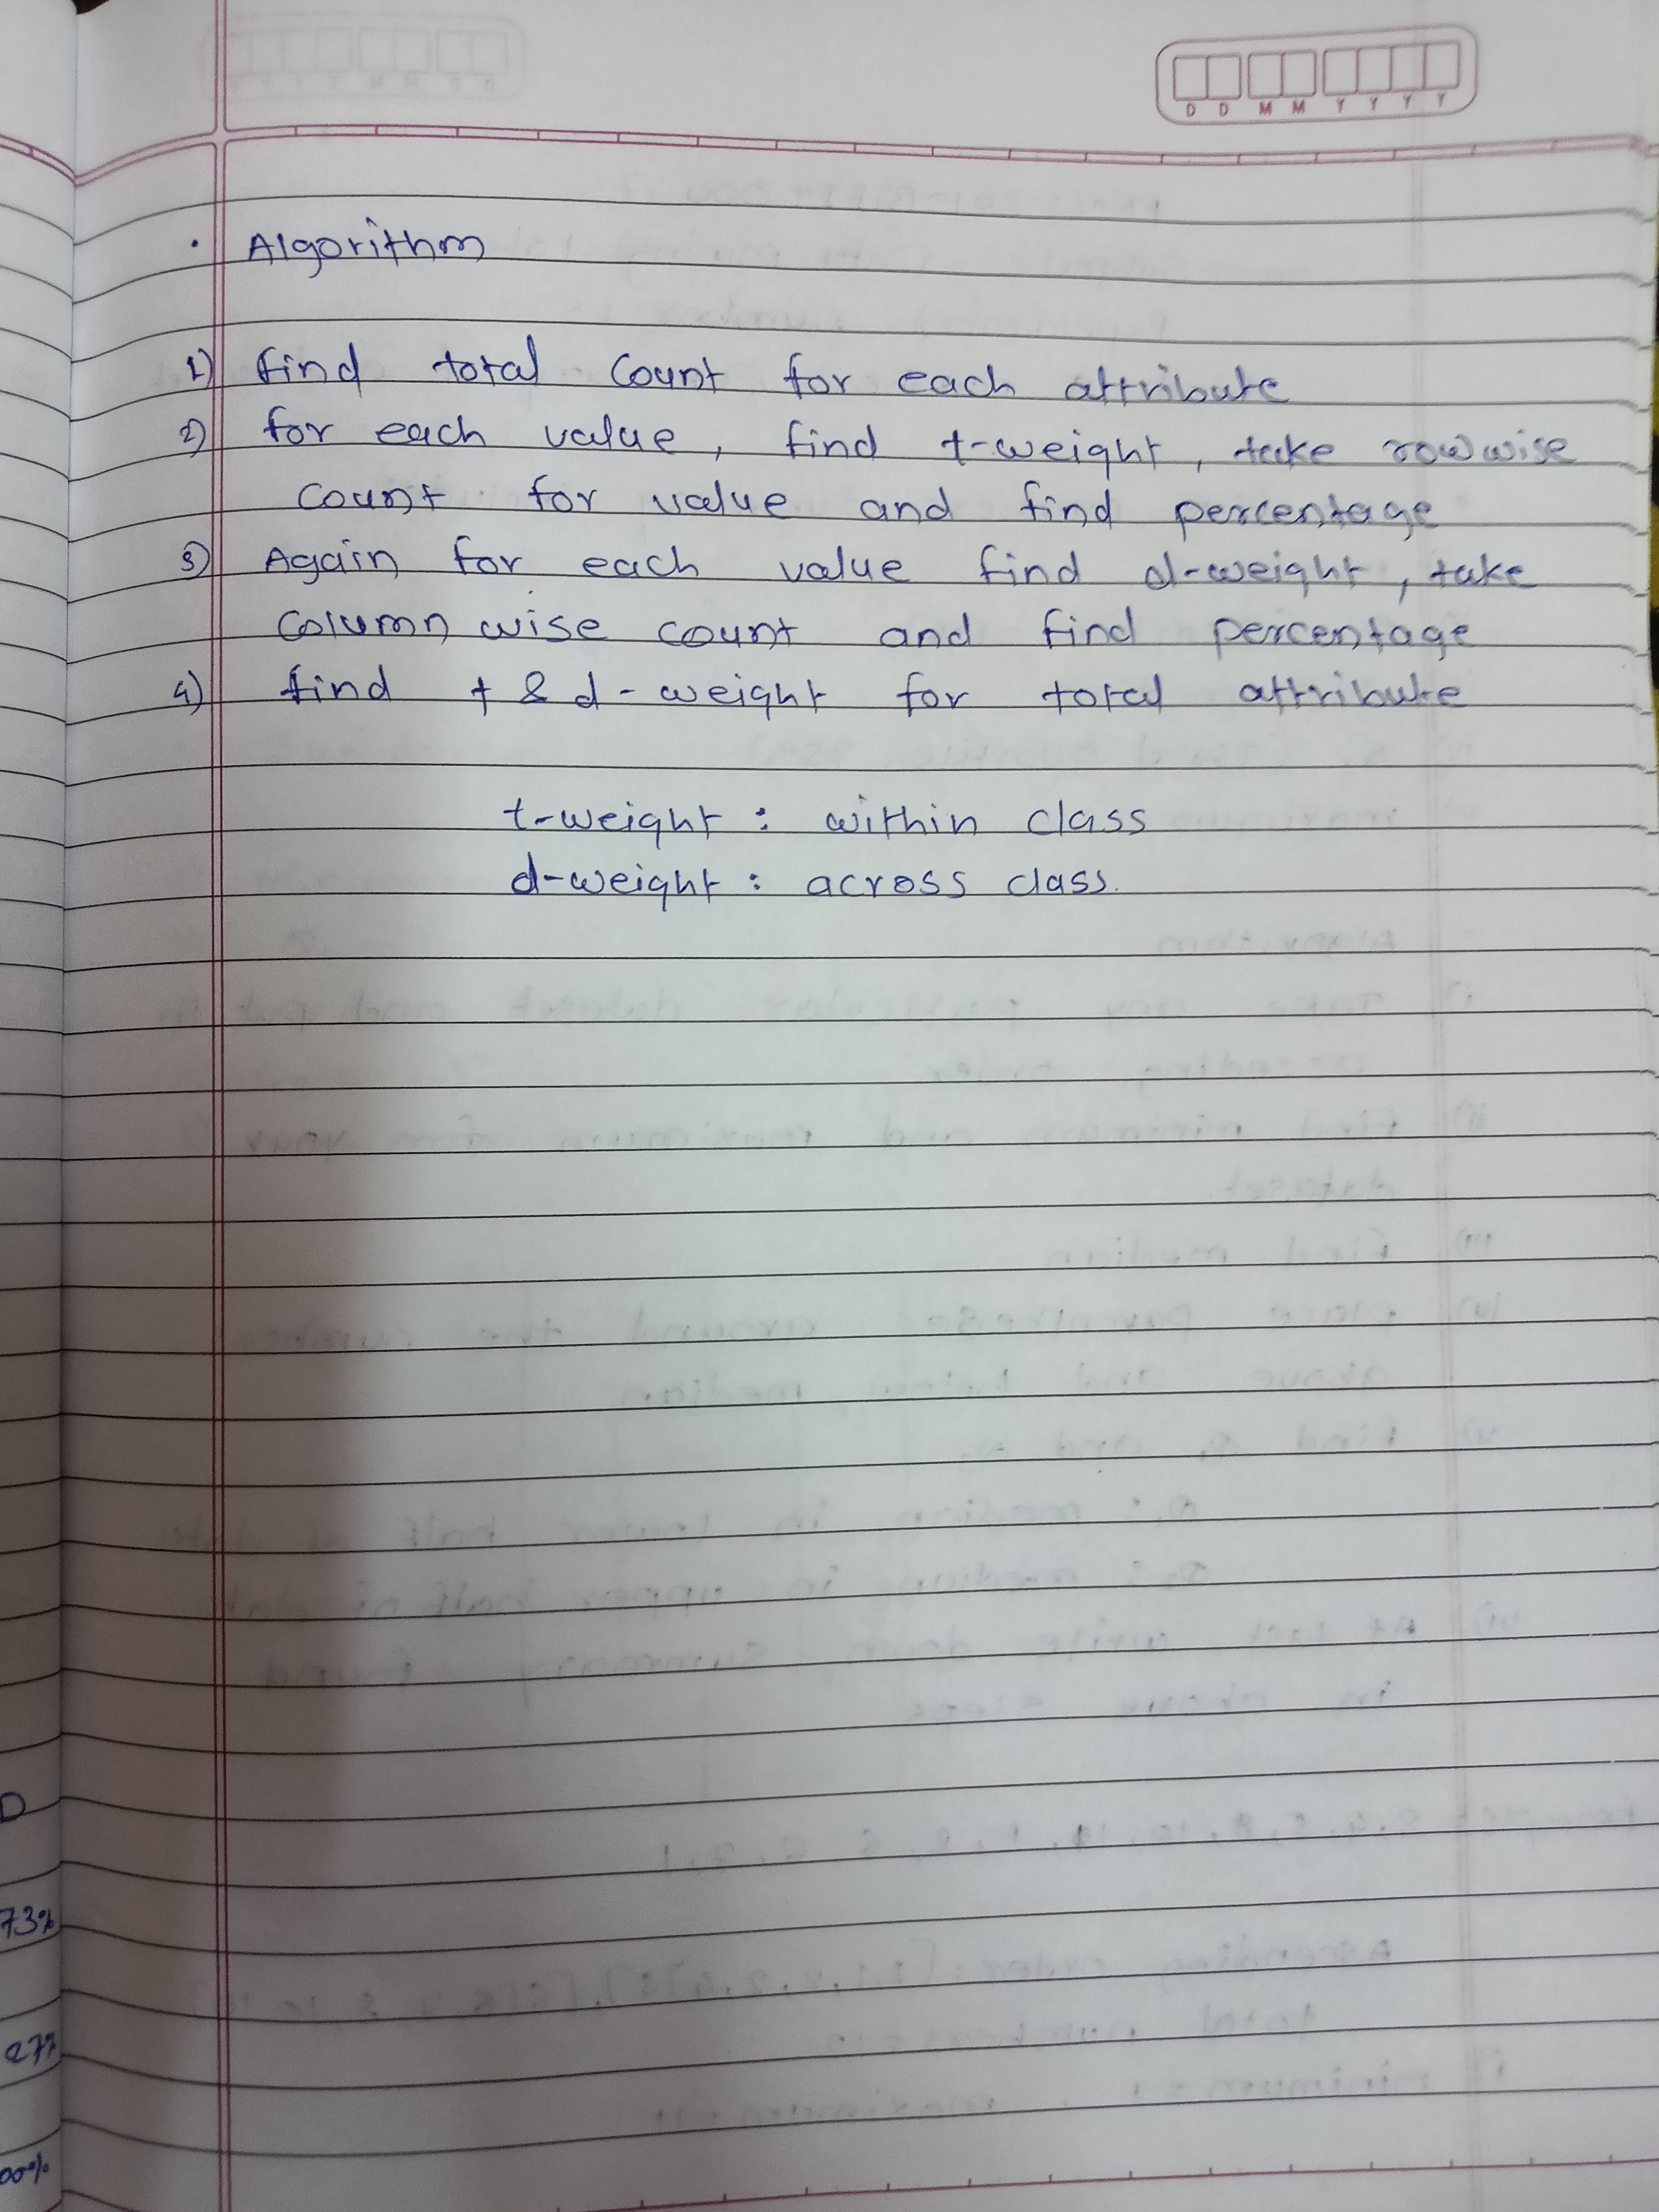 D D M M Y Y Y Y
• Algorithm
1) find total count for each attribute
2) for each value, find t-weight, take rowwise
count for value and find percentage
3) Again for each value find d-weight, take
column wise count and find percentage
4) find t & d-weight for total attribute
t-weight : within class
d-weight : across class.
D
73%
27%
00%